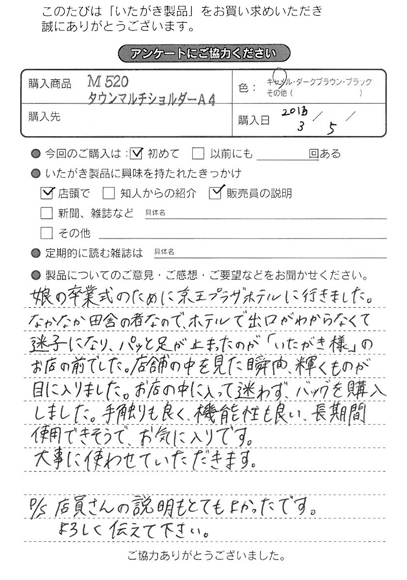 このたびは「いたがき製品」をお買い求めいただき
誠にありがとうございます。
アンケートにご協力ください
購入商品 M520
タウンマルチショルダーA4
色： キャメル・ダークブラウン・ブラック
その他（ ）
購入先
購入日 2018/3/5
● 今回のご購入は：☑ 初めて □ 以前にも 回ある
● いたがき製品に興味を持たれたきっかけ
☑ 店頭で □ 知人からの紹介 ☑ 販売員の説明
□ 新聞、雑誌など 具体名
□ その他
● 定期的に読む雑誌は 具体名
● 製品についてのご意見・ご感想・ご要望などをお聞かせください。
娘の卒業式のために京王プラザホテルに行きました。
なかなか田舎の者なので、ホテルで出口がわからなくて
迷子になり、パッと足が止まったのが「いたがき様」の
お店の前でした。店舗の中を見た瞬間、輝くものが
目に入りました。お店の中に入って迷わず、バッグを購入
しました。手触りも良く、機能性も良い、長期間
使用できそうで、お気に入りです。
大事に使わせていただきます。
P/S 店員さんの説明もとてもよかったです。
よろしく伝えて下さい。
ご協力ありがとうございました。